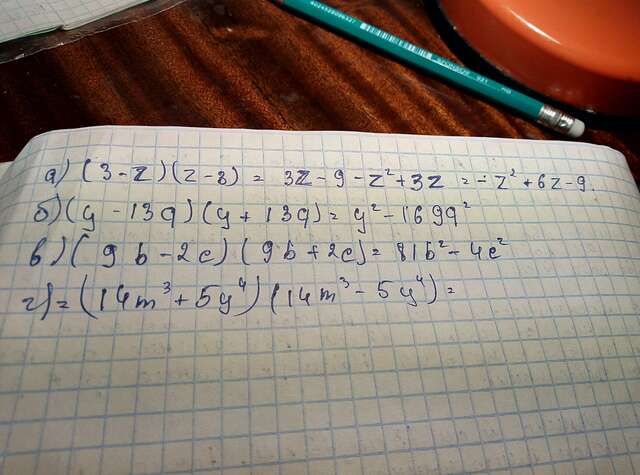 а) (3 - z)(z - 3) = 3z - 9 - z² + 3z = - z² + 6z - 9.
б) (y - 13q)(y + 13q) = y² - 169q²
в) (9b - 2c)(9b + 2c) = 81b² - 4c²
г) = (14m³ + 5y⁴)(14m³ - 5y⁴) =